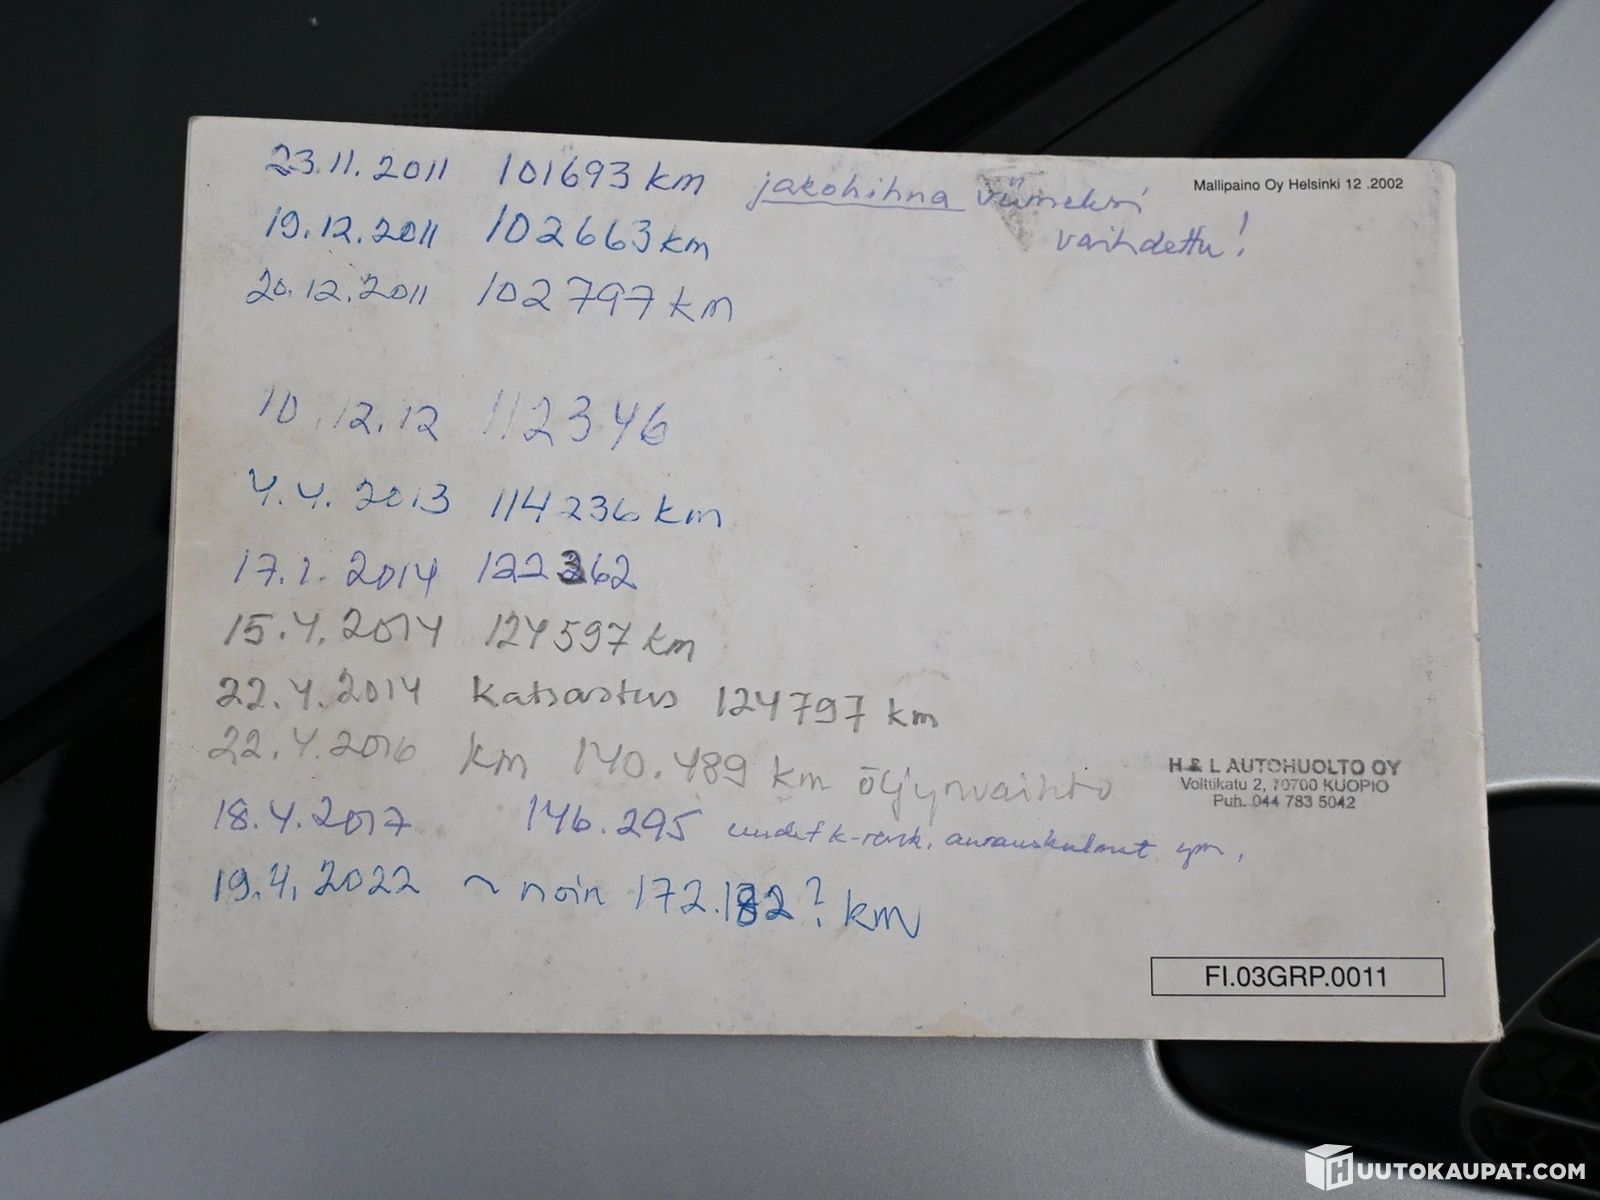 23.11.2011 101693 km jakohihna viimeksi
Mallipaino Oy Helsinki 12 .2002
19.12.2011 102663 km vaihdettu!
20.12.2011 102797 km
10.12.12 112346
4.4.2013 114236 km
17.1.2014 122362
15.4.2014 124597 km
22.4.2014 Katsastus 124797 km
22.4.2016 km 140.489 km öljynvaihto
H & L AUTOHUOLTO OY
Volttikatu 2, 70700 KUOPIO
Puh. 044 783 5042
18.4.2017 146.295 uudet k-renk, aurauskulmat ym,
19.4.2022 ~ noin 172.182? km
FI.03GRP.0011
HUUTOKAUPAT.COM